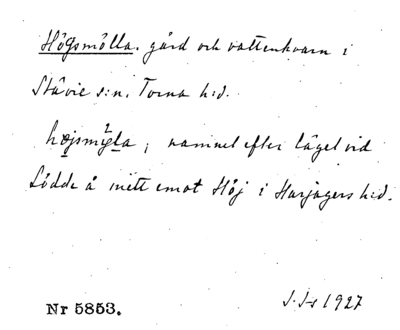 Högsmölla. gård och vattenkvarn i
Stävie s:n. Torna h:d.
namnet efter läget vid
Lödde å mitt emot Hög i Harjagers h:d.
Nr 5853. 1927